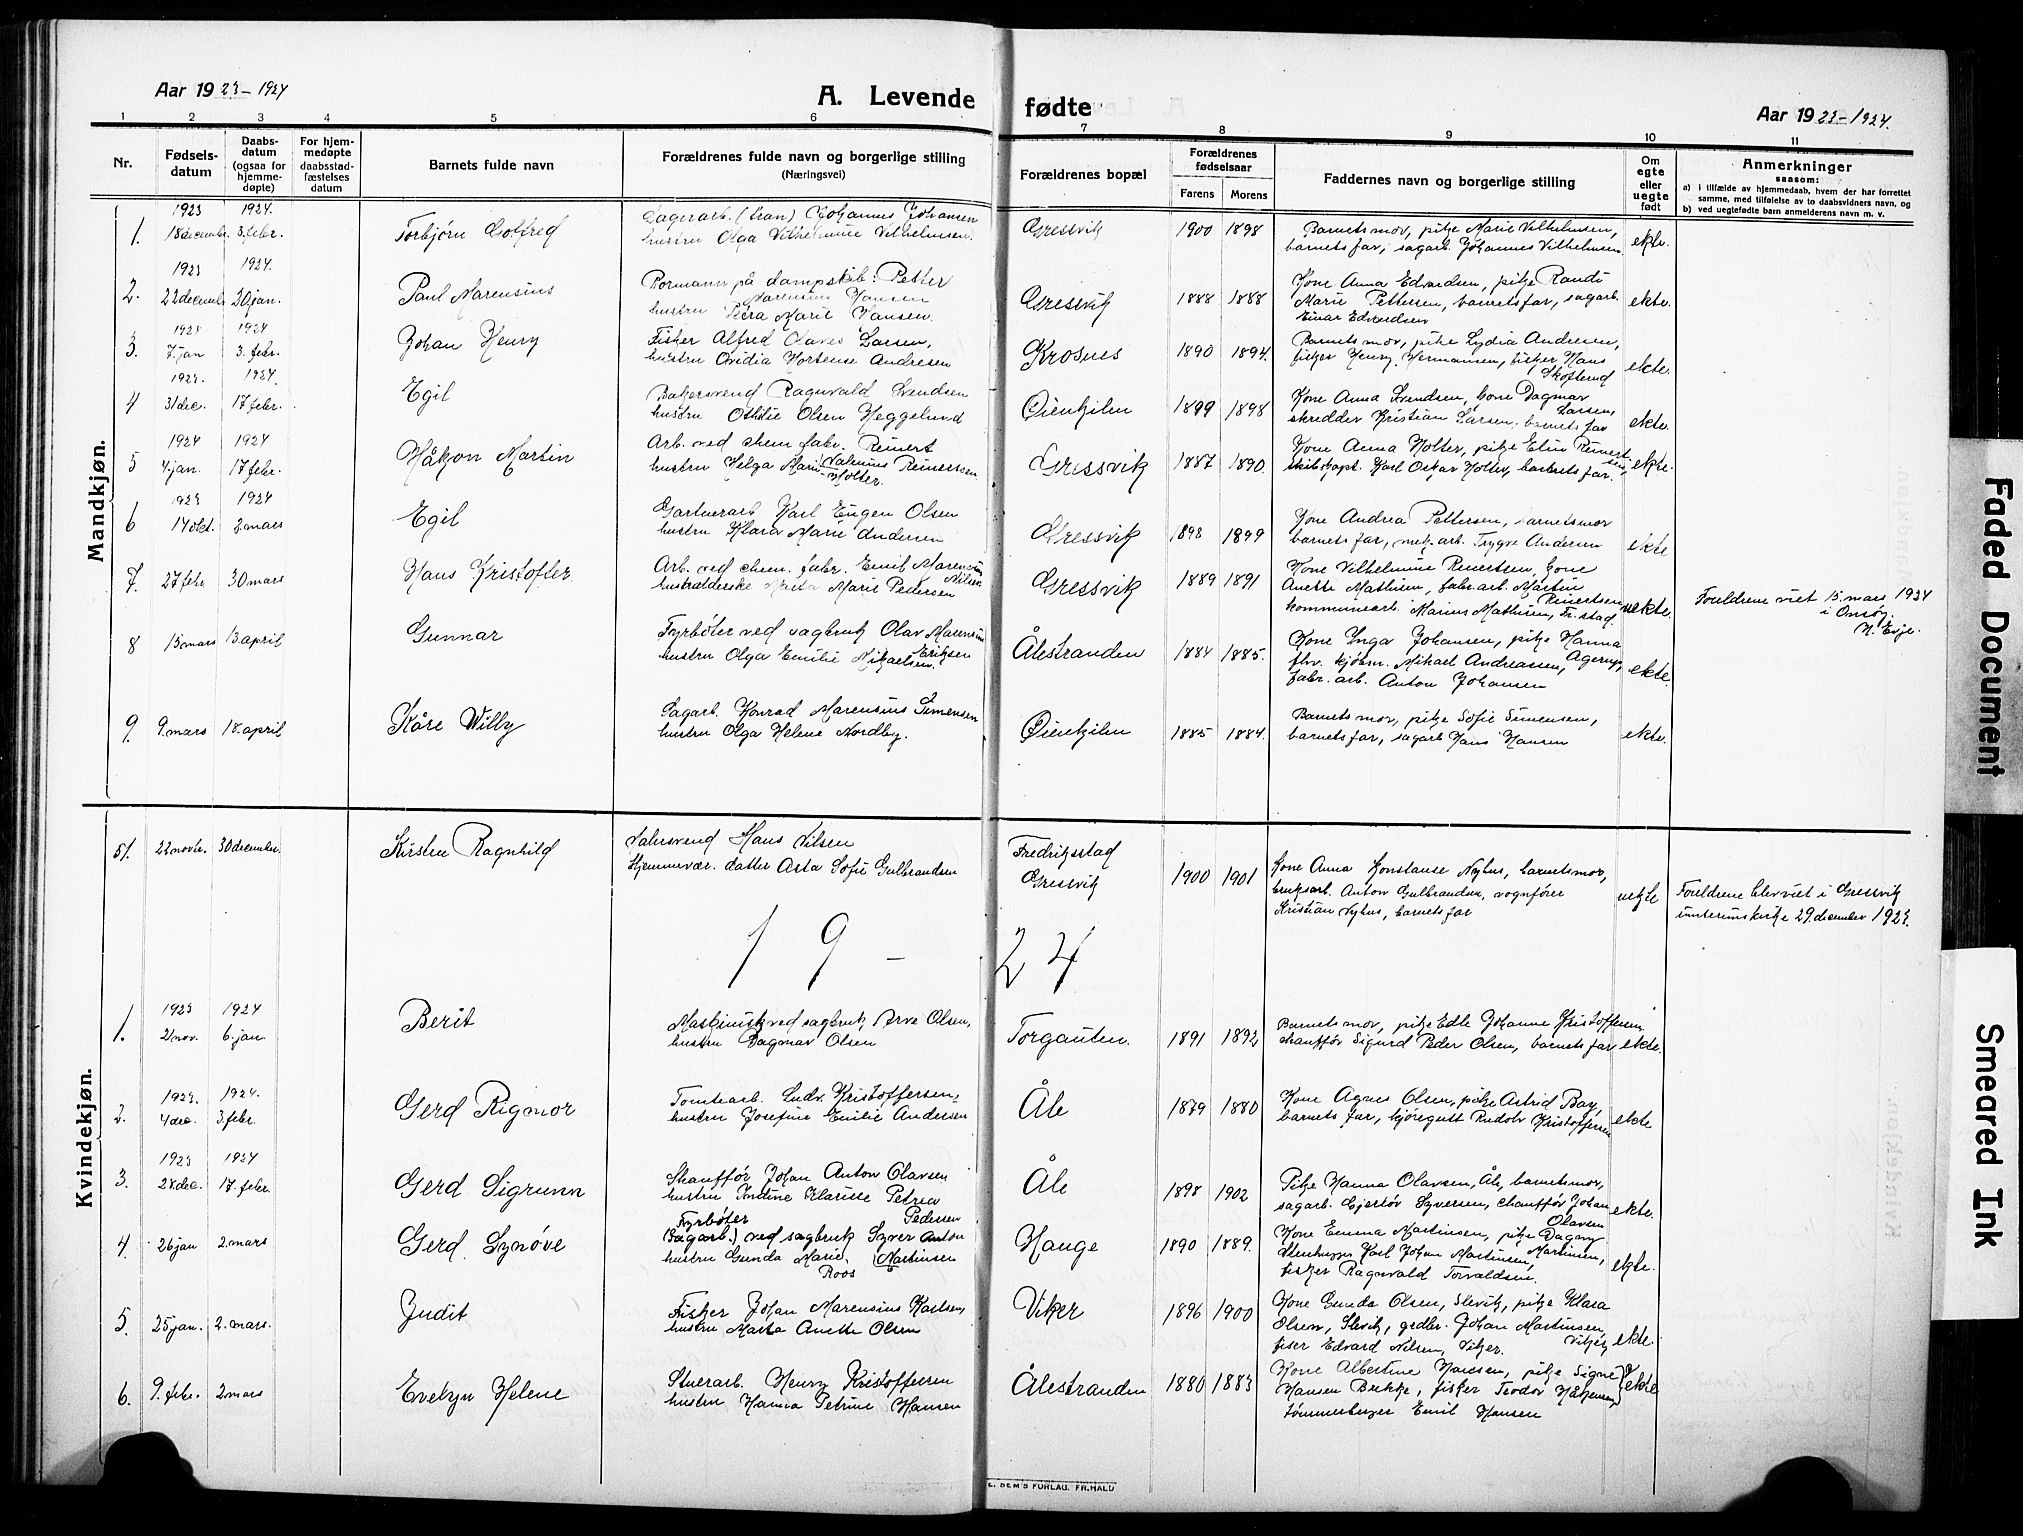 Aar 1923-1924
A. Levende
fødte
Aar 1923-1924.
1 2 3 4 5 6 7 8 9 10 11
Nr.
Fødsels-
datum
Daabs-
datum
(ogsaa for
hjemme-
døpte)
For hjem-
medøpte
daabsstad-
fæstelses
datum
Barnets fulde navn
Forældrenes fulde navn og borgerlige stilling
(Næringsvei)
Forældrenes bopæl
Forældrenes
fødselsaar
Farens Morens
Faddernes navn og borgerlige stilling
Om
egte
eller
uegte
født
Anmerkninger
saasom:
a) i tilfælde av hjemmedaab, hvem der har forrettet
samme, med tilføielse av to daabsvidners navn, og
b) ved uegtefødte barn anmelderens navn m. v.
Mandkjøn.
1923 1924.
1. 18 decembr. 3. febr. Torbjørn Gotfred
Johannes Johansen
hustru Olga Vilhelmine Vilhelmsen.
Gressvik 1900 1898
Barnets mor, pike Marie Vilhelmsen,
barnets far, sagarb. Johannes Vilhelmsen
ekte.
1923 1924.
2. 22 decembr 20 jan. Paul Marensius
Formann på dampskib: Petter
Marensius Hansen
hustru Petra Marie Hansen.
Gressvik 1888 1888
Kone Anna Edvardsen, pike Randi
Marie Pettersen, barnets far, sagarb.
Einar Edvardsen
ekte.
1924 1924
3. 7. jan 3. febr. Johan Henry
Fisker Alfred Olaves Larsen,
hustru Ovidia Hortense Andresen
Krosnes 1890 1894.
Barnets mor, pike Lydia Andresen,
fisker Henry Hermansen, fisker Hans
Skofterud
ekte.
1923. 1924.
4 31 dec. 17 febr. Egil
Bakersvend Ragnvald Svendsen
hustru Othilie Olsen Heggelund
Øienkilen 1899 1898
Kone Anna Svendsen, kone Dagmar
Larsen,
skredder Kristian Larsen, barnets far
ekte.
1924 1924
5 4 jan. 17 febr. Håkon Martin
Arb. ved chem. fabr. Reinert
hustru Helga Marie Valenius Reinertsen
Holter.
Gressvik 1887 1890.
Kone Anna Holter, pike Elin Reinert-
sen,
skibskapt. Karl Oskar Holter, barnets far.
ekte.
1923 1924
6 14 okt. 2 mars Egil
Gartnerarb Karl Eugen Olsen
hustru Klara Marie Andersen
Gressvik 1898 1899
Kone Andrea Pettersen, barnets mor
barnets far, mek. arb. Trygve Andersen
ekte
7. 27 febr 30 mars Hans Kristoffer
Arb. ved chem. fabr. Emil Marensius
Nilsen
Marta Marie Pedersen
Gressvik 1889 1891
Kone Vilhelmine Reinertsen, kone
Anette Mathisen, fabr. arb. Martin
Reinertsen
kommunearb. Marius Mathisen, Fr.stad.
uekte.
Foreldrene viet 15. mars 1924
i Onsøy.
N. Evje.
8 15 mars 13 april Gunnar
Fyrbøter ved sagbruk Olav Marensius
Eriksen
hustru Olga Emilie Mikaelsen.
Ålestranden 1884 1885.
Kone Inga Johansen, pike Hanna
Agerup,
fhv. kjøbm. Mikael Andreassen,
fabr. arb. Anton Johansen
ekte.
9. 9. mars 18. april Kåre Willy
Sagarb. Konrad Marensius Simensen
hustru Olga Helene Nordby.
Øienkilen 1885 1884.
Barnets mor, pike Sofie Simensen,
barnets far, sagarb Hans Hansen
ekte.
Kvindekjøn.
51. 22 novbr. 30 december. Kirsten Ragnhild
Hans Nilsen
Hjemmevær. datter Asta Sofie Gulbrandsen
Fredrikstad
Gressvik 1900 1901
Kone Anna Konstanse Nyhus, barnets mor,
bruksarb. Anton Gulbrandsen, vognfører
Kristian Nyhus, barnets far
uekte
Foreldrene blev viet i Gressvik
interimskirke 29. december 1923.
19 - 24
1923 1924
1. 2 nov. 6. jan. Berit
Maskinist ved sagbruk Arve Olsen,
hustru Dagmar Olsen
Torgauten. 1891 1892
Barnets mor, pike Edle Johanne Kristoffersen,
chauffør Sigurd Peder Olsen, barnets far
ekte.
1923. 1924.
2. 4 dec. 3. febr. Gerd Rigmor
Tomtearb. Ludv. Kristoffersen,
hustru Josefine Emilie Andersen
Åle 1879 1880
Kone Agnes Olsen, pike Astrid Bay,
barnets far, kjøregutt Rudolv Kristoffersen
ekte
1923 1924
3. 28 dec. 17. febr. Gerd Sigrunn
Skauffør Johan Anton Olavsen
hustru Indine Klarisse Petrea
Pedersen
Åle 1898 1902
Pike Hanna Olavsen, Åle, barnets mor,
sagarb. Gjertøv Syversen, chauffør Johan
Olavsen
ekte.
4. 26 jan 2. mars Gerd Synøve
Fyrbøter
(Sagarb.) ved sagbruk Syver Anton
hustru Gunda Marie Martinsen
Roos
Hauge 1890 1889.
Kone Emma Martinsen, pike Dagny
Martinsen,
Karl Johan Martinsen,
fisker Ragnvald Torvaldsen.
ekte.
5. 25 jan. 2. mars. Judit
Fisker Johan Marensius Karlsen,
hustru Marta Anette Olsen
Viker 1896 1900
Kone Gunda Olsen, Slevik, pike Klara
Olsen, Slevik, grdbr. Johan Martinsen,
Viker,
fisker Edvard Nilsen, Viker.
ekte.
6. 9. febr. 2 mars Evelyn Helene
Stuerarb. Henry Kristoffersen
hustru Hanna Petrine Hansen
Ålestranden 1880 1883
Kone Albertine Hansen, pike Signe
Hansen Bekke, fisker Teodor Håkensen,
tømmerberger Emil Hansen
ekte
E. SEM'S FORLAG. FR.HALD
Faded Document
Smeared Ink